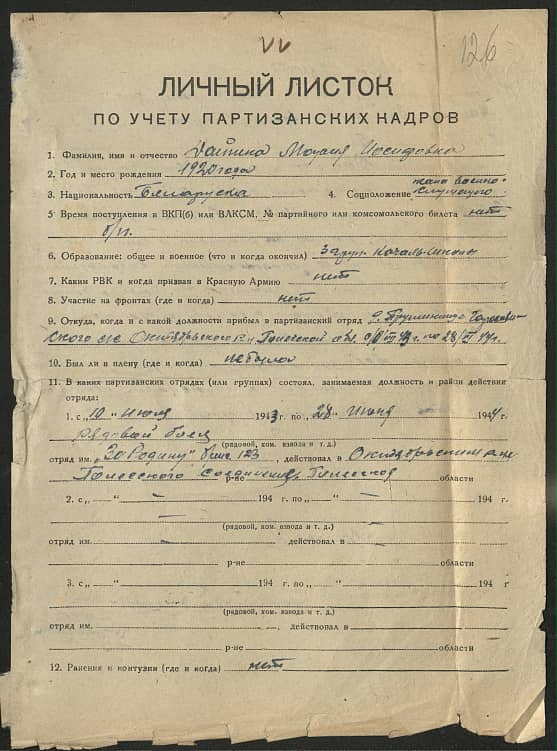 126
ЛИЧНЫЙ ЛИСТОК
ПО УЧЕТУ ПАРТИЗАНСКИХ КАДРОВ
1. Фамилия, имя и отчество
2. Год и место рождения 1920 года
3. Национальность Беларуска 4. Соцположение жена военно-
служущего
5 Время поступления в ВКП(б) или ВЛКСМ, № партийного или комсомольского билета нет
б/п.
6. Образование: общее и военное (что и когда окончил) 3 груп. начальн школы
7. Каким РВК и когда призван в Красную Армию нет
8. Участие на фронтах (где и когда) нет
9. Откуда, когда и с какой должности прибыл в партизанский отряд
с/с Октябрьского Полесской обл.
10. Был ли в плену (где и когда) не была
11. В каких партизанских отрядах (или группах) состоял, занимаемая должность и район действия
отряда:
1. с „10" июля 1943 г. по „28" июня 1944 г.
рядовой боец
(рядовой, ком. взвода и т. д.)
отряд им. „За Родину" бриг 123, действовал в Октябрьском
Полесского соединения р-не области
2. с „ — " 194 г. по „ — " 194 г.
(рядовой, ком. взвода и т. д.)
отряд им. — действовал в —
р-не области
3. с „ — " 194 г. по „ — " 194 г
(рядовой, ком. взвода и т. д.)
отряд им. действовал в
р-не области
12. Ранения и контузии (где и когда) нет